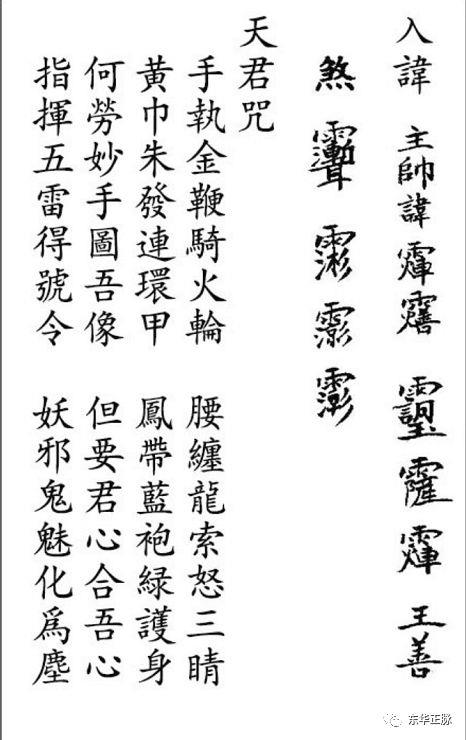 入諱 主帥諱 王善
煞
天君咒
手執金鞭騎火輪 腰纏龍索怒三睛
黃巾朱發連環甲 鳳帶藍袍緑護身
何勞妙手圖吾像 但要君心合吾心
指揮五雷得號令 妖邪鬼魅化爲塵
东华正脉